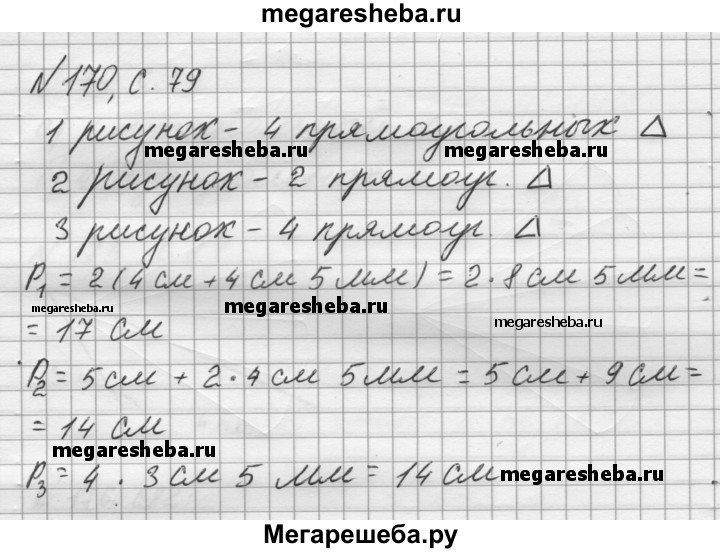 megaresheba.ru
№170, с. 79
1 рисунок – 4 прямоугольных Δ
megaresheba.ru megaresheba.ru
2 рисунок – 2 прямоуг. Δ
3 рисунок – 4 прямоуг. Δ
P₁ = 2(4 см + 4 см 5 мм) = 2 · 8 см 5 мм =
megaresheba.ru megaresheba.ru megaresheba.ru
= 17 см
P₂ = 5 см + 2 · 4 см 5 мм = 5 см + 9 см =
= 14 см
megaresheba.ru megaresheba.ru
P₃ = 4 · 3 см 5 мм = 14 см megaresheba.ru
Мегарешеба.ру